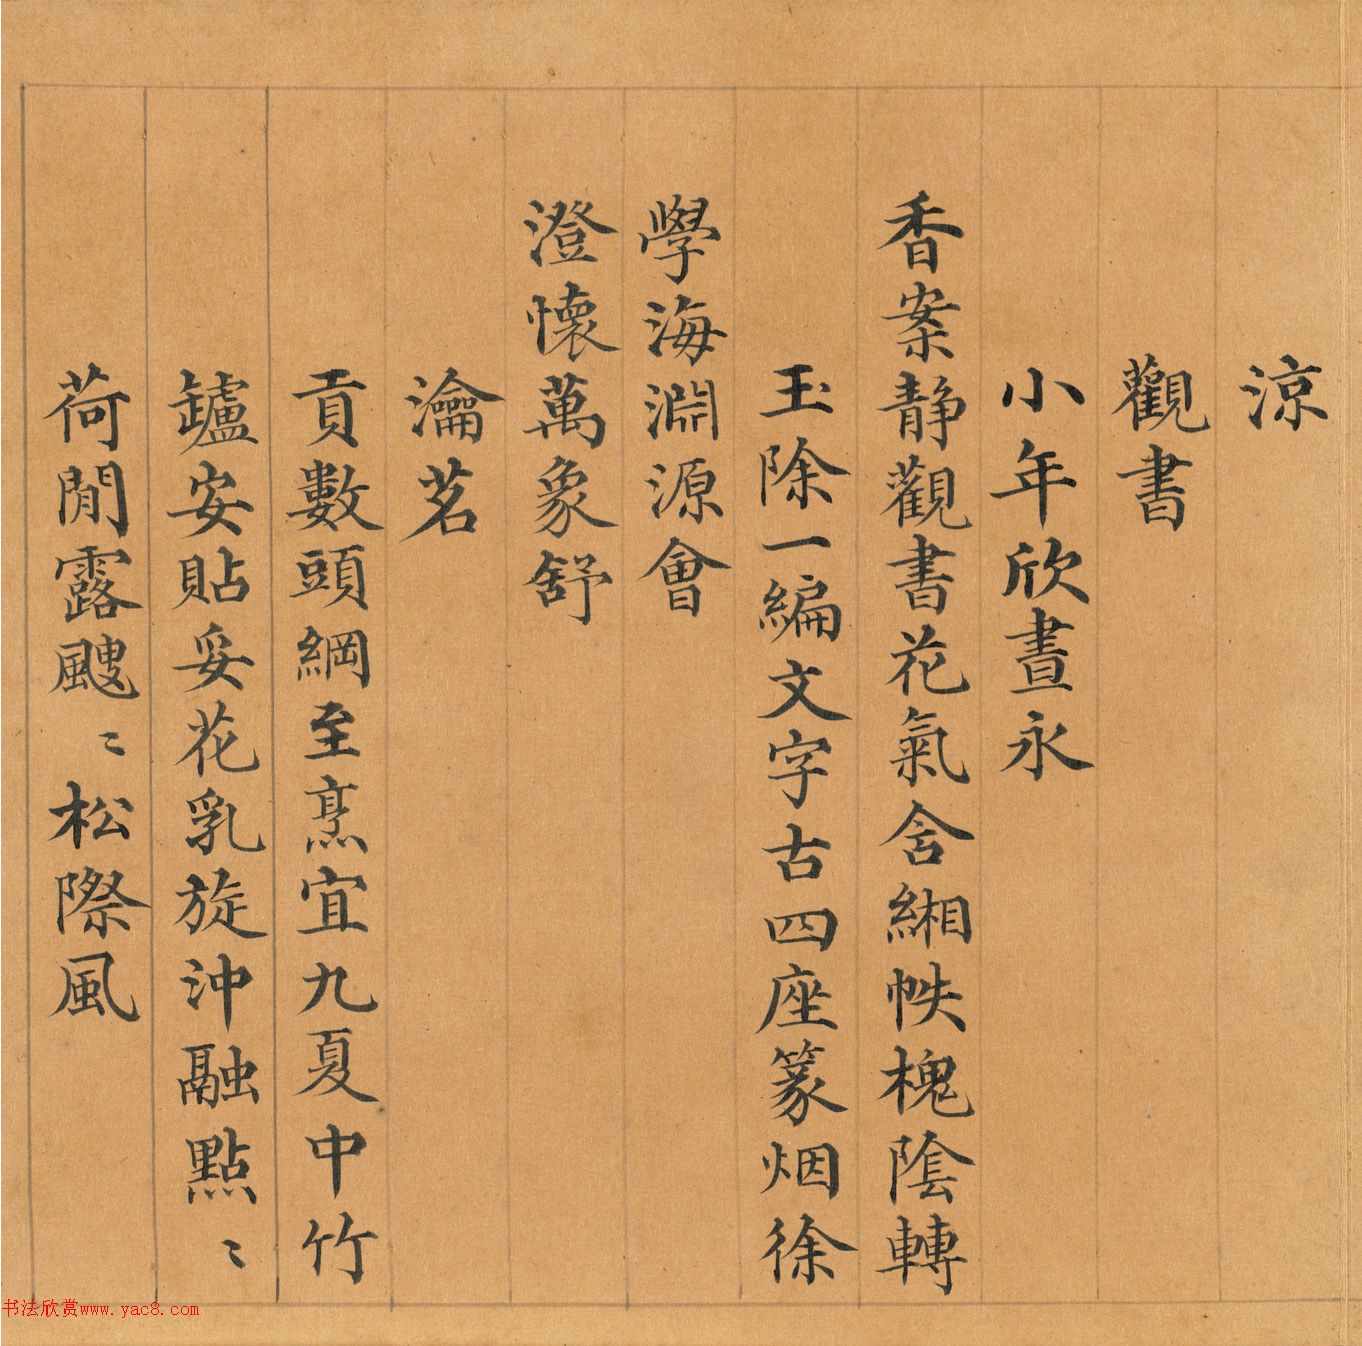 涼
觀書
小年欣晝永
香案静觀書花氣含緗帙槐陰轉
玉除一編文字古四座篆烟徐
學海淵源會
澄懷萬象舒
瀹茗
貢數頭綱至烹宜九夏中竹
鑪安貼妥花乳旋沖融點〻
荷閒露颼〻松際風
书法欣赏www.yac8.com